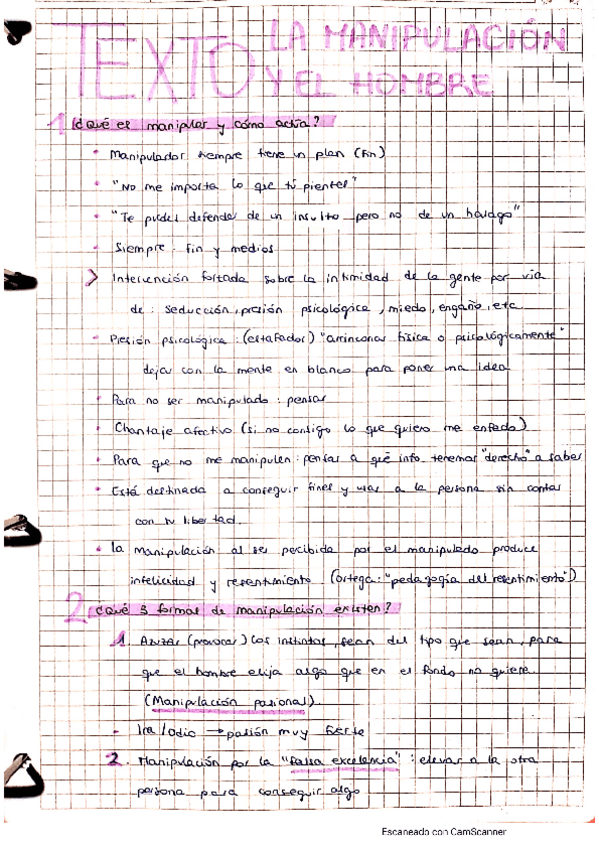 TEXTO LA MANIPULACIÓN
Y EL HOMBRE
1 ¿Qué es manipular y cómo actúa?
· Manipulador siempre tiene un plan (fin)
· "No me importa lo que tú pienses"
· "Te puedes defender de un insulto pero no de un halago"
· Siempre: fin y medios
> Intervención forzada sobre la intimidad de la gente por vía
de: seducción, presión psicológica, miedo, engaño, etc.
· Presión psicológica: (estafador) "arrinconar física o psicológicamente"
dejar con la mente en blanco para poner una idea
· Para no ser manipulado: pensar
· Chantaje afectivo (si no consigo lo que quiero me enfado)
· Para que no me manipulen: pensar a qué info. tenemos "derecho" a saber
· Está destinada a conseguir fines y usar a la persona sin contar
con tu libertad.
· La manipulación al ser percibida por el manipulado produce
infelicidad y resentimiento (Ortega: "pedagogía del resentimiento")
2 ¿Qué 3 formas de manipulación existen?
1. Azuzar (provocar) los instintos, sean del tipo que sean, para
que el hombre elija algo que en el fondo no quiere.
(Manipulación pasional).
- Ira/odio → pasión muy fuerte
2. Manipulación por la "falsa excelencia": elevar a la otra
persona para conseguir algo
Escaneado con CamScanner